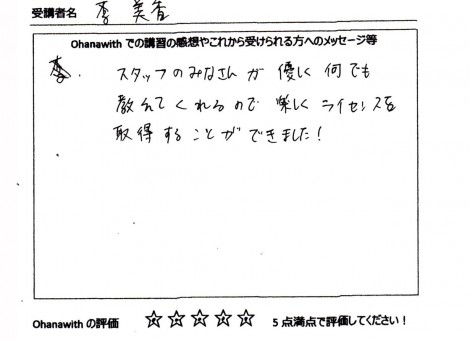 受講者名 李 美香
Ohanawith での講習の感想やこれから受けられる方へのメッセージ等
スタッフのみなさんが 優しく 何でも
教えてくれるので 楽しく ライセンスを
取得することができました!
Ohanawith の評価 ☆☆☆☆☆ 5 点満点で評価してください!